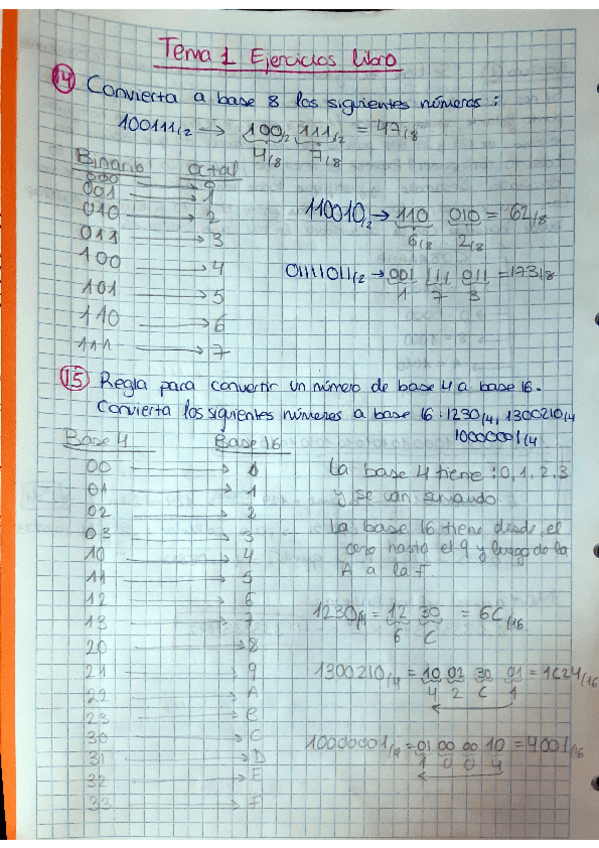 Tema 1 Ejercicios libro
14 Convierta a base 8 los siguientes números:
100111/2 → 100/2 111/2 = 47/8
4/8 7/8
Binario octal
000 → 0
001 → 1
010 → 2
011 → 3
100 → 4
101 → 5
110 → 6
111 → 7
110010/2 → 110 010 = 62/8
6/8 2/8
01111011/2 → 001 111 011 = 173/8
1 7 3
15 Regla para convertir un número de base 4 a base 16.
Convierta los siguientes números a base 16: 1230/4, 1300210/4
1000001/4
Base 4 Base 16
00 → 0
01 → 1
02 → 2
03 → 3
10 → 4
11 → 5
12 → 6
13 → 7
20 → 8
21 → 9
22 → A
23 → B
30 → C
31 → D
32 → E
33 → F
La base 4 tiene: 0, 1, 2, 3
y se van sumando
La base 16 tiene desde el
cero hasta el 9 y luego de la
A a la F.
1230/4 = 12 30 = 6C/16
6 C
1300210/4 = 10 02 30 01 = 1C24/16
4 2 C 1
10000001/4 = 01 00 00 10 = 4001/16
1 0 0 4